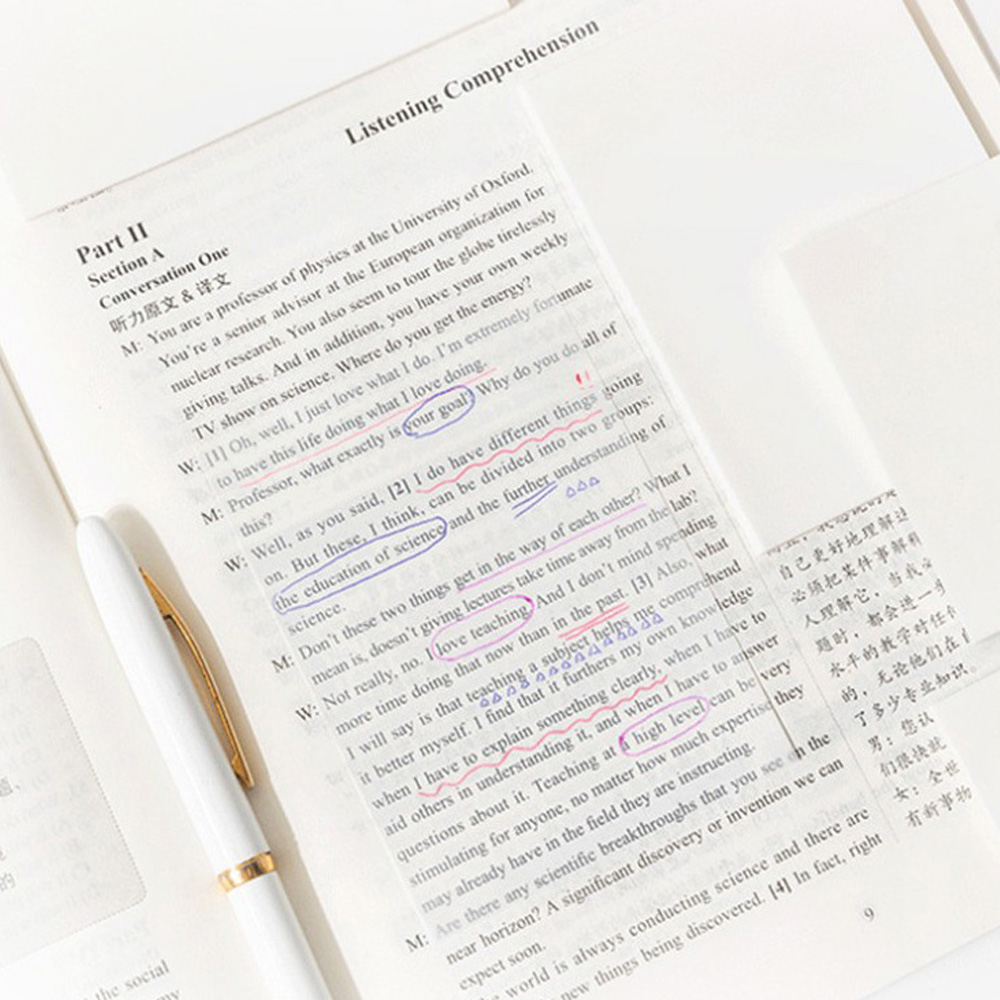 Listening Comprehension
Part II
Section A
Conversation One
听力原文 & 译文
M: You are a professor of physics at the University of Oxford.
You're a senior advisor at the European organization for
nuclear research. You also seem to tour the globe tirelessly
giving talks. And in addition, you have your own weekly
TV show on science. Where do you get the energy?
W: [1] Oh, well, I just love what I do. I'm extremely fortunate
to have this life doing what I love doing.
M: Professor, what exactly is your goal? Why do you do all of
this?
W: Well, as you said, [2] I do have different things going
on. But these, I think, can be divided into two groups:
the education of science and the further understanding of
science.
M: Don't these two things get in the way of each other? What I
mean is, doesn't giving lectures take time away from the lab?
W: Not really, no. I love teaching. And I don't mind spending
more time doing that now than in the past. [3] Also, what
I will say is that teaching a subject helps me comprehend
it better myself. I find that it furthers my own knowledge
when I have to explain something clearly, when I have to
aid others in understanding it, and when I have to answer
questions about it. Teaching at a high level can be very
stimulating for anyone, no matter how much expertise they
may already have in the field they are instructing.
M: Are there any scientific breakthroughs that you see on the
near horizon? A significant discovery or invention we can
expect soon.
world is always conducting science and there are
new things being discovered. [4] In fact, right
9
自己更好地理解
必须把某件事解
人理解它，当我
题时，都会进一
水平的教学对任
的，无论他们在
了多少专业知识。
男：您认
们很快就
女：全世
有新事物
the social